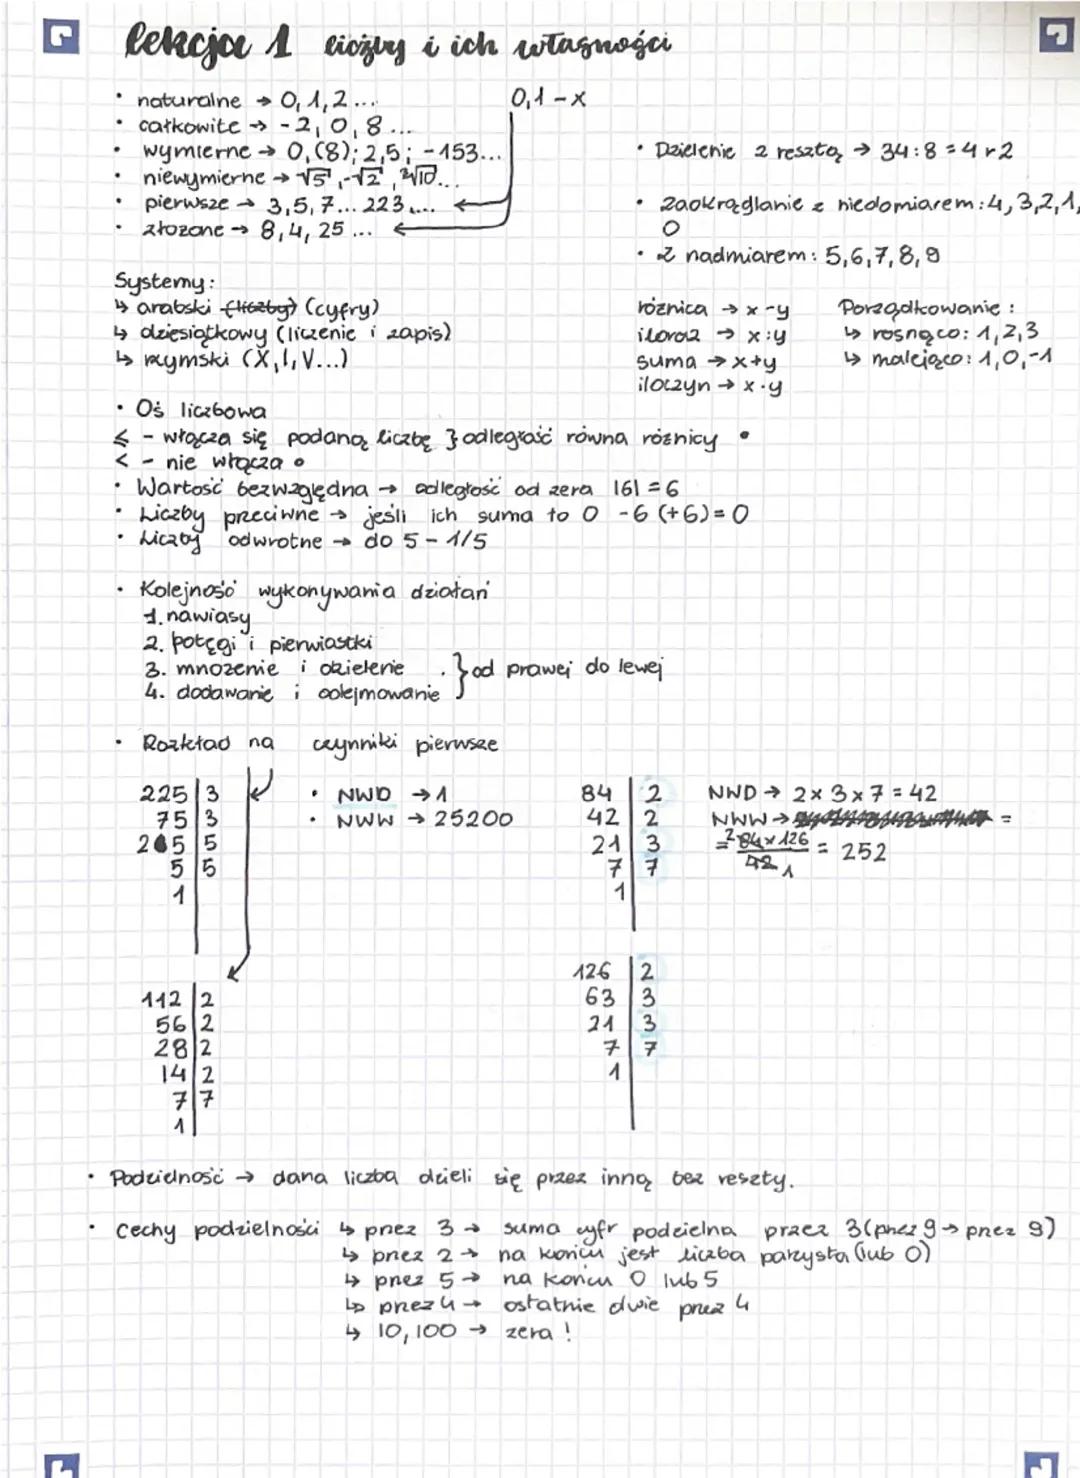 lekcja 1 liczby i ich własności
• naturalne → 0, 1, 2 ...
0,1 - x
• całkowite → -2, 0, 8 ...
• wymierne → 0,(8); 2,5; -153...
• niewymierne → √5, -√2, ∛10...
• pierwsze → 3,5,7... 223,...
• złożone → 8,4, 25 ...
• Dzielenie z resztą → 34:8 = 4 r 2
• zaokrąglanie z niedomiarem: 4, 3, 2, 1,
0
• z nadmiarem: 5,6,7,8,9
Systemy:
↳ arabski (liczby) (cyfry)
↳ dziesiątkowy (liczenie i zapis)
↳ rzymski (X, I, V...)
różnica → x-y
iloraz → x:y
suma → x+y
iloczyn → x·y
Porządkowanie:
↳ rosnąco: 1, 2, 3
↳ malejąco: 1, 0, -1
• Oś liczbowa
≤ - włącza się podaną liczbę } odległość równa różnicy •
< - nie włącza ∘
• Wartość bezwzględna → odległość od zera |6| = 6
• Liczby przeciwne → jeśli ich suma to 0 -6 (+6) = 0
• Liczby odwrotne → do 5 - 1/5
• Kolejność wykonywania działań
1. nawiasy
2. potęgi i pierwiastki
3. mnożenie i dzielenie
4. dodawanie i odejmowanie
} od prawej do lewej
• Rozkład na czynniki pierwsze
225 | 3
75 | 3
25 | 5
5 | 5
1
• NWD → 1
• NWW → 25200
84 | 2
42 | 2
21 | 3
7 | 7
1
NWD → 2 x 3 x 7 = 42
NWW → =
= 2 84 x 126 / 42 1 = 252
112 | 2
56 | 2
28 | 2
14 | 2
7 | 7
1
126 | 2
63 | 3
21 | 3
7 | 7
1
• Podzielność → dana liczba dzieli się przez inną bez reszty.
• Cechy podzielności ↳ przez 3 → suma cyfr podzielna przez 3 (przez 9 → przez 9)
↳ przez 2 → na końcu jest liczba parzysta (lub 0)
↳ przez 5 → na końcu 0 lub 5
↳ przez 4 → ostatnie dwie przez 4
↳ 10, 100 → zera!